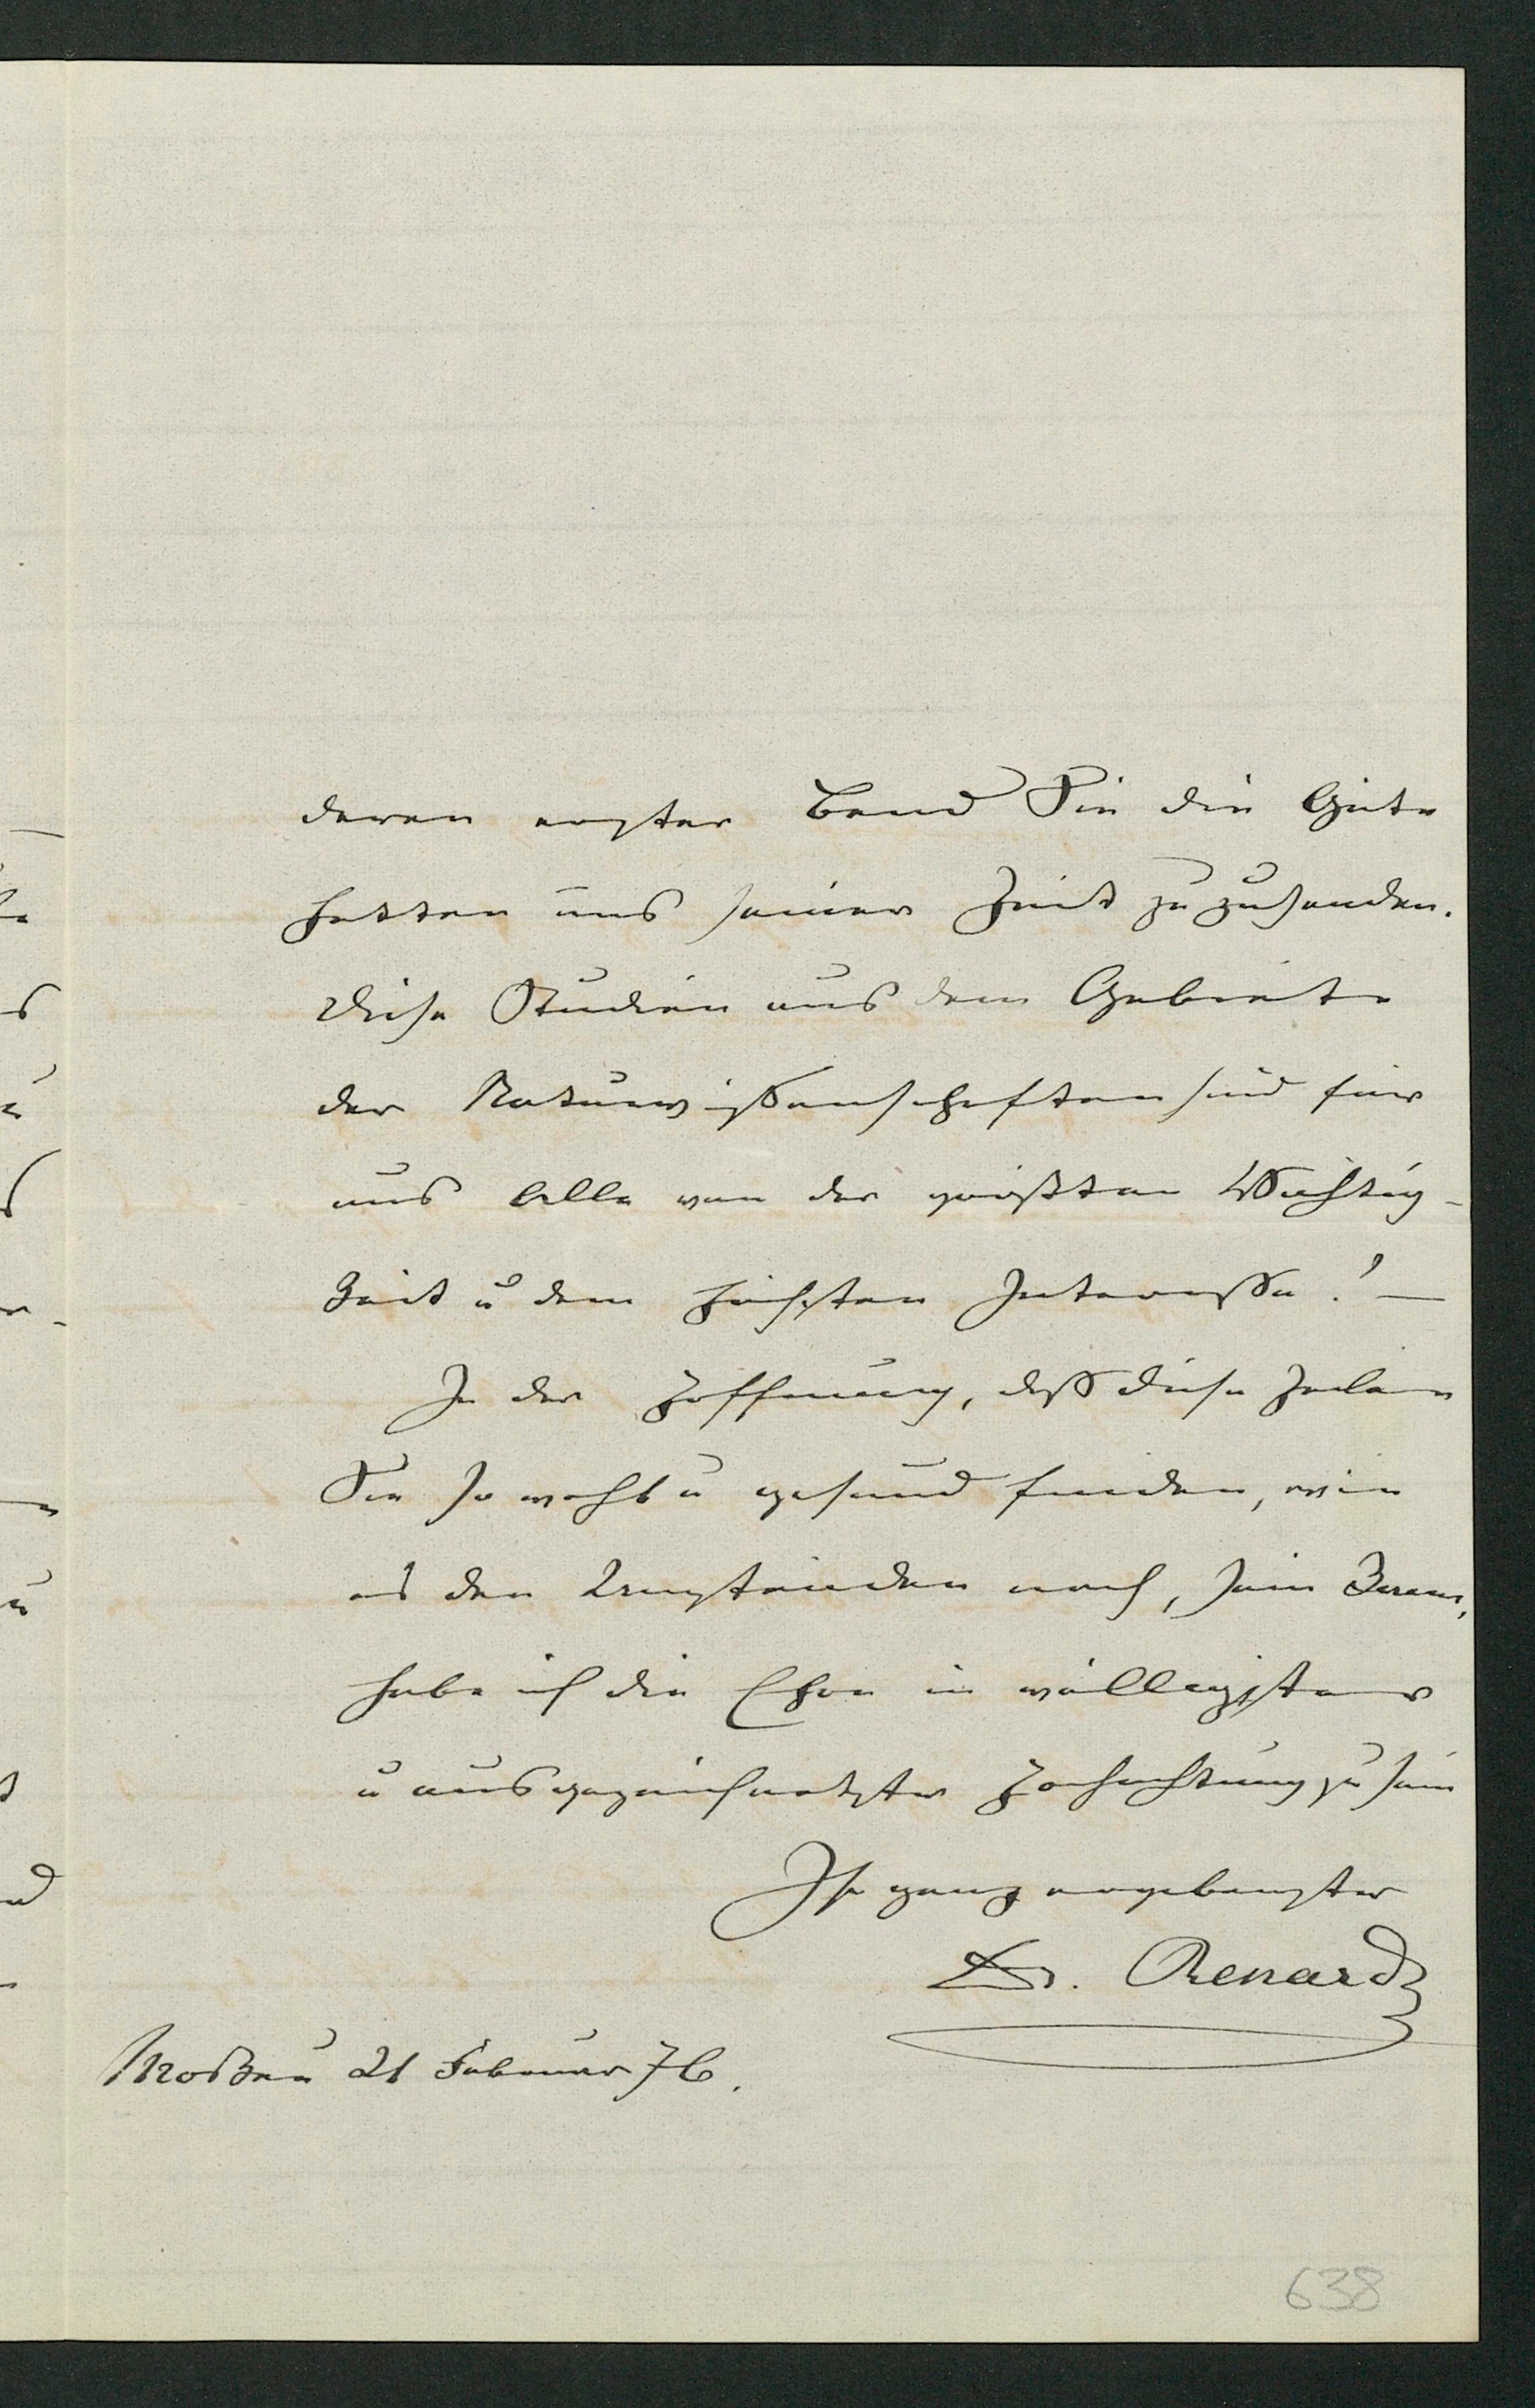 deren erster Band Sie die Güte
hatten uns seiner Zeit zuzusenden.
Diese Studien aus dem Gebiete
der Naturwißenschaften sind für
uns Alle von der größten Wichtig-
keit u dem höchsten Interesse! —
In der Hoffnung, daß diese Zeilen
Sie so wohl u gesund finden, wie
es den Umständen nach, sein kann,
habe ich die Ehre in völligster
u ausgezeichnetster Hochachtung zu sein
Ihr ganz ergebenster
Dr. Renard
Moskau 21 Februar 76.
638